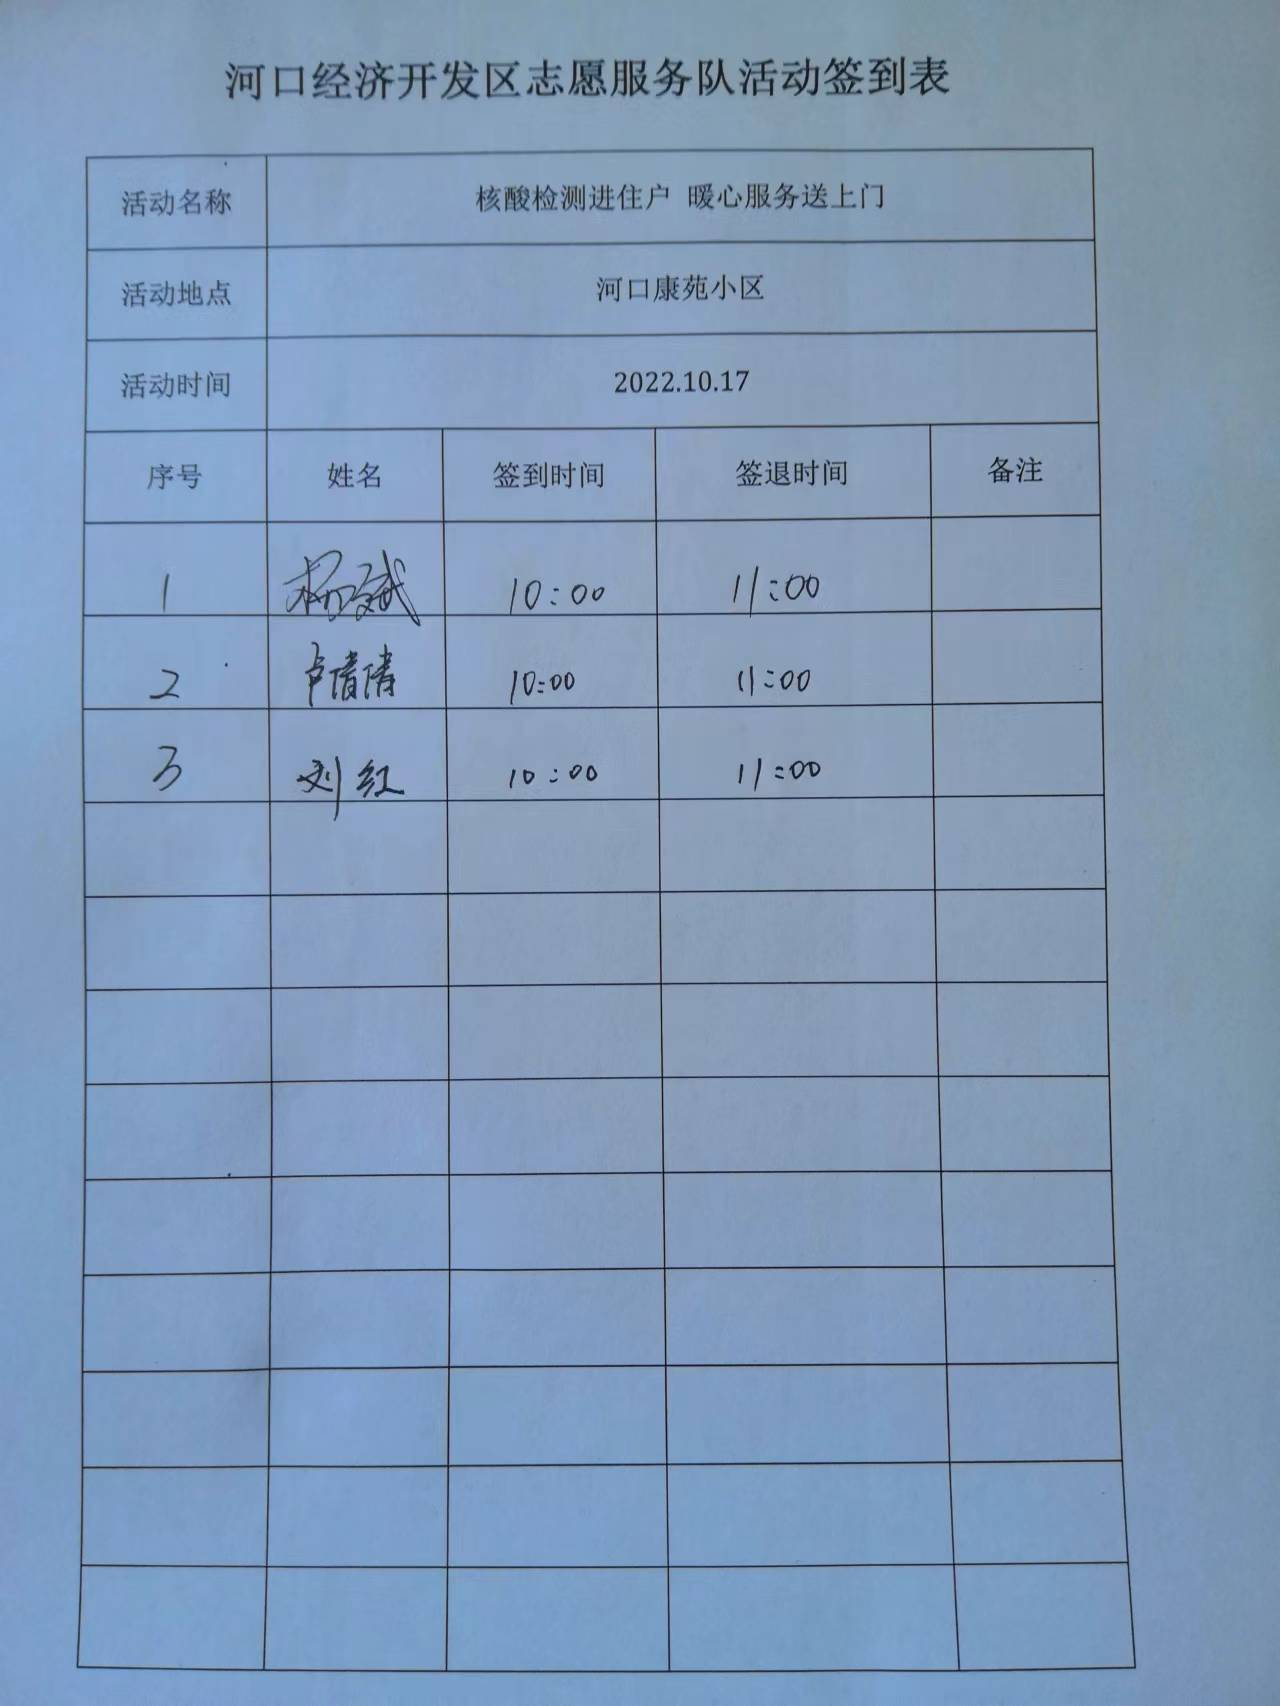 河口经济开发区志愿服务队活动签到表
活动名称 核酸检测进住户 暖心服务送上门
活动地点 河口康苑小区
活动时间 2022.10.17
序号 姓名 签到时间 签退时间 备注
1 杨斌 10:00 11:00
2 卢倩倩 10:00 11:00
3 刘红 10:00 11:00